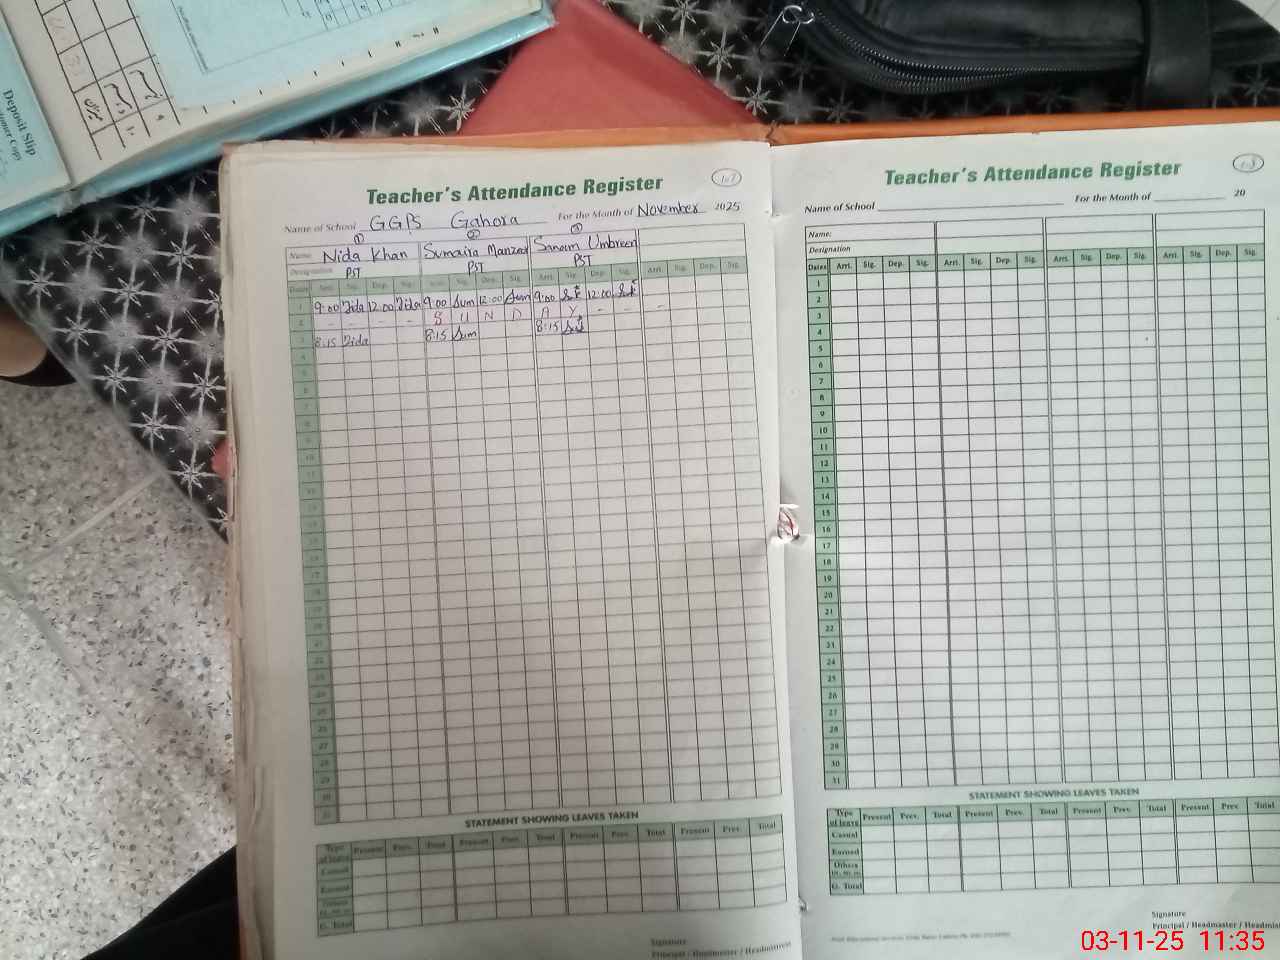 Deposit Slip
Teacher's Attendance Register
107
Name of School GGPS Gahora For the Month of November 2025
① ② ③
Name: Nida Khan Sumaira Manzoor Sanam Umbreen
Designation PST PST PST
Dates Arri. Sig. Dep. Sig. Arri. Sig. Dep. Sig. Arri. Sig. Dep. Sig. Arri. Sig. Dep. Sig.
1 9:00 Nida 12:00 Nida 9:00 Sum 12:00 Sum 9:00 12:00
2 - - - - S U N D A Y - - -
3 8:15 Nida 8:15 Sum 8:15
4
5
6
7
8
9
10
11
12
13
14
15
16
17
18
19
20
21
22
23
24
25
26
27
28
29
30
31
STATEMENT SHOWING LEAVES TAKEN
Type of leave Present Prev. Total Present Prev. Total Present Prev. Total Present Prev. Total
Casual
Earned
G. Total
Signature
Principal / Headmaster / Headmistress
Teacher's Attendance Register
108
Name of School For the Month of 20
Name:
Designation
Dates Arri. Sig. Dep. Sig. Arri. Sig. Dep. Sig. Arri. Sig. Dep. Sig. Arri. Sig. Dep. Sig.
1
2
3
4
5
6
7
8
9
10
11
12
13
14
15
16
17
18
19
20
21
22
23
24
25
26
27
28
29
30
31
STATEMENT SHOWING LEAVES TAKEN
Type of leave Present Prev. Total Present Prev. Total Present Prev. Total Present Prev. Total
Casual
Earned
Others
G. Total
Signature
Principal / Headmaster / Headmis
03-11-25 11:35